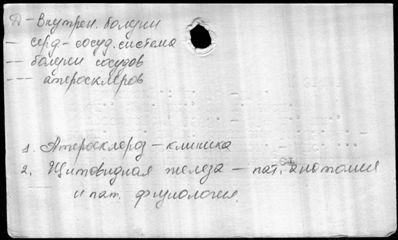 Д - Внутрен. болезни
- серд - сосуд. система
-- болезни сосудов
--- атеросклероз
1. Атеросклероз - клиника
2. Щитовидная железа - пат. анатомия
и пат. физиология.